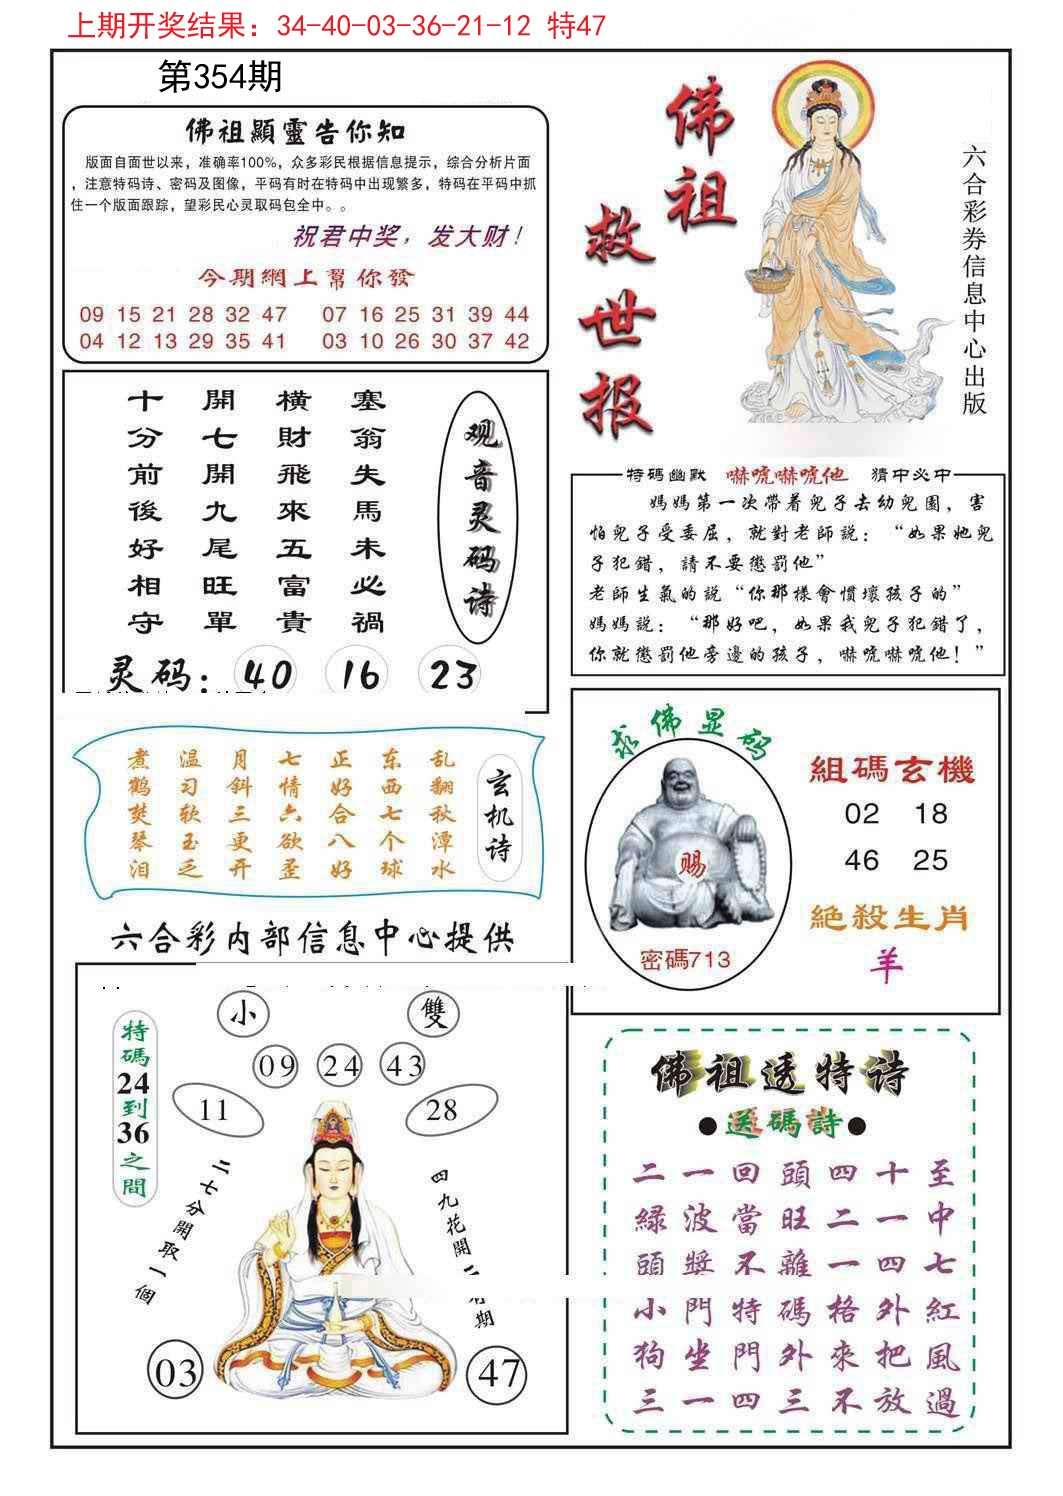 上期开奖结果：34-40-03-36-21-12 特47
第354期
佛祖顯靈告你知
版面自面世以来，准确率100%，众多彩民根据信息提示，综合分析片面
，注意特码诗、密码及图像，平码有时在特码中出现繁多，特码在平码中抓
住一个版面跟踪，望彩民心灵取码包全中。。
祝君中奖，发大财！
今期網上幫你發
09 15 21 28 32 47 07 16 25 31 39 44
04 12 13 29 35 41 03 10 26 30 37 42
佛祖
救世报
六合彩券信息中心出版
观音灵码诗
塞翁失馬未必禍
橫財飛來五富貴
開七開九尾旺單
十分前後好相守
灵码：40 16 23
特碼幽默 嚇唬嚇唬他 猜中必中
媽媽第一次帶着兒子去幼兒園，害
怕兒子受委屈，就對老師説：“如果她兒
子犯錯，請不要懲罰他”
老師生氣的説“你那樣會慣壞孩子的”
媽媽説：“那好吧，如果我兒子犯錯了，
你就懲罰他旁邊的孩子，嚇唬嚇唬他！”
玄机诗
乱翻秋潭水
东西七个球
正好合八好
七情六欲歪
月斜三更开
温习软玉乏
煮鹤焚琴泪
求佛显码
赐
密碼713
組碼玄機
02 18
46 25
絕殺生肖
羊
六合彩内部信息中心提供
小 雙
09 24 43
11 28
特碼24到36之間
二七分開取一個
四九花開
期
03 47
佛祖透特诗
●送碼詩●
二一回頭四十至
緑波當旺二一中
頭獎不離一四七
小門特碼格外紅
狗坐門外來把風
三一四三不放過